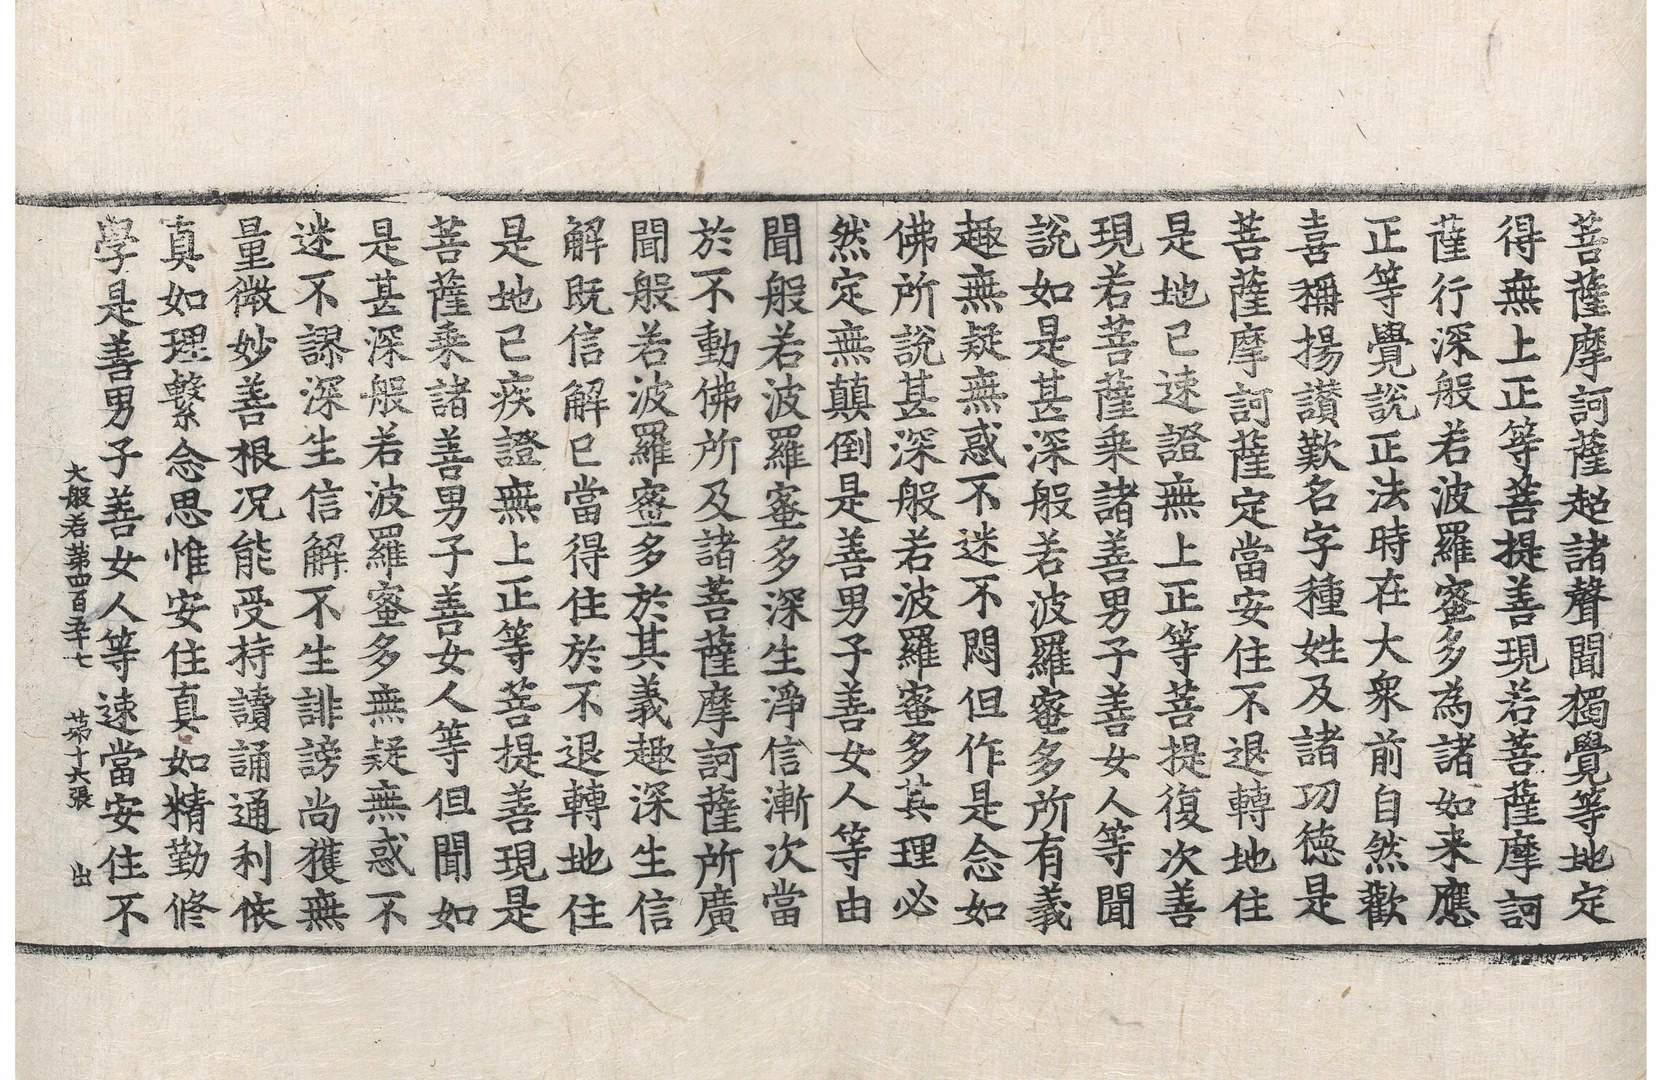 菩薩摩訶薩超諸聲聞獨覺等地定
得無上正等菩提善現若菩薩摩訶
薩行深般若波羅蜜多為諸如来應
正等覺說正法時在大衆前自然歡
喜稱揚讃歎名字種姓及諸功德是
菩薩摩訶薩定當安住不退轉地住
是地已速證無上正等菩提復次善
現若菩薩乘諸善男子善女人等聞
說如是甚深般若波羅蜜多所有義
趣無疑無惑不迷不悶但作是念如
佛所說甚深般若波羅蜜多其理必
然定無顛倒是善男子善女人等由
聞般若波羅蜜多深生淨信漸次當
於不動佛所及諸菩薩摩訶薩所廣
聞般若波羅蜜多於其義趣深生信
解既信解已當得住於不退轉地住
是地已疾證無上正等菩提善現是
菩薩乘諸善男子善女人等但聞如
是甚深般若波羅蜜多無疑無惑不
迷不謬深生信解不生誹謗尚獲無
量微妙善根况能受持讀誦通利依
真如理繫念思惟安住真如精勤修
學是善男子善女人等速當安住不
大般若第四百五十七 第十六張 出